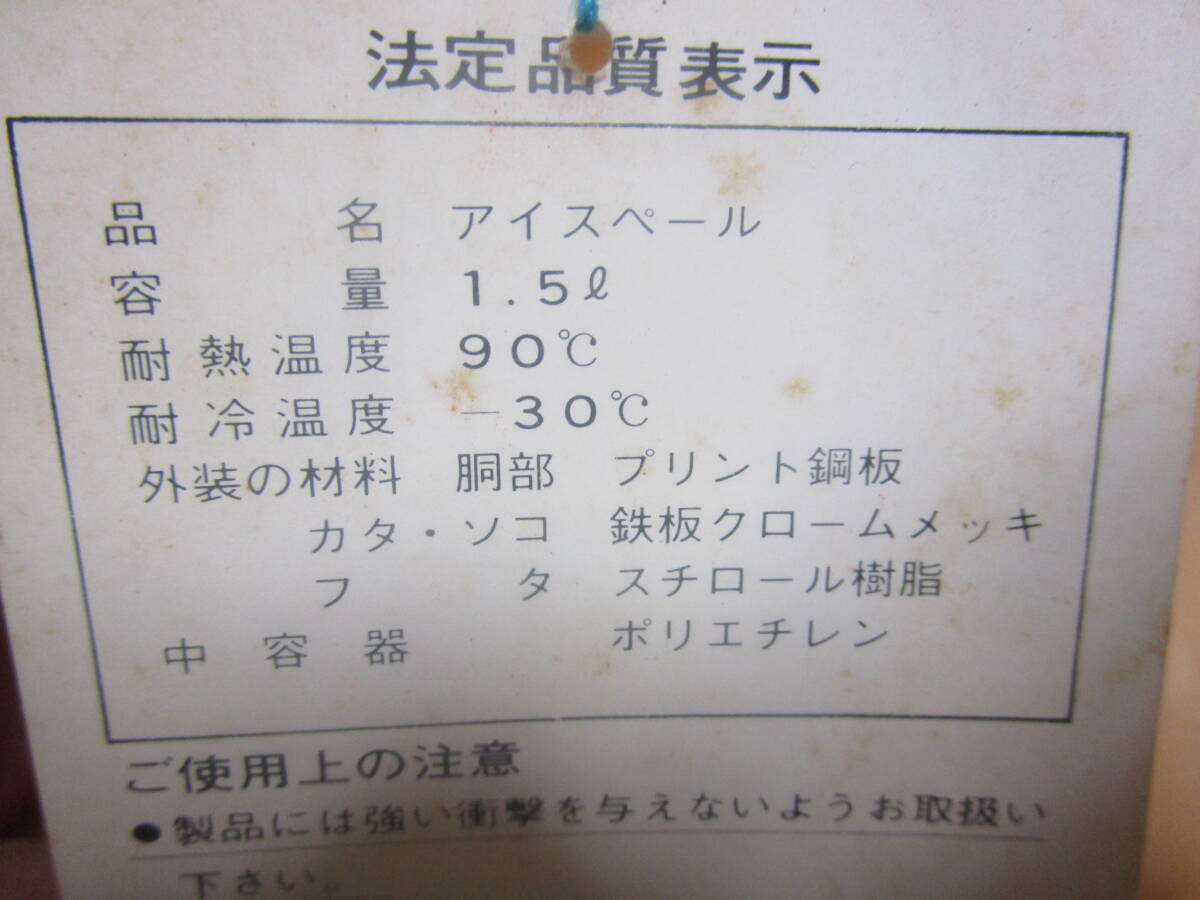 法定品質表示
品名 アイスペール
容量 1.5ℓ
耐熱温度 90℃
耐冷温度 －30℃
外装の材料 胴部 プリント鋼板
カタ・ソコ 鉄板クロームメッキ
フタ スチロール樹脂
中容器 ポリエチレン
ご使用上の注意
●製品には強い衝撃を与えないようお取扱い
下さい。